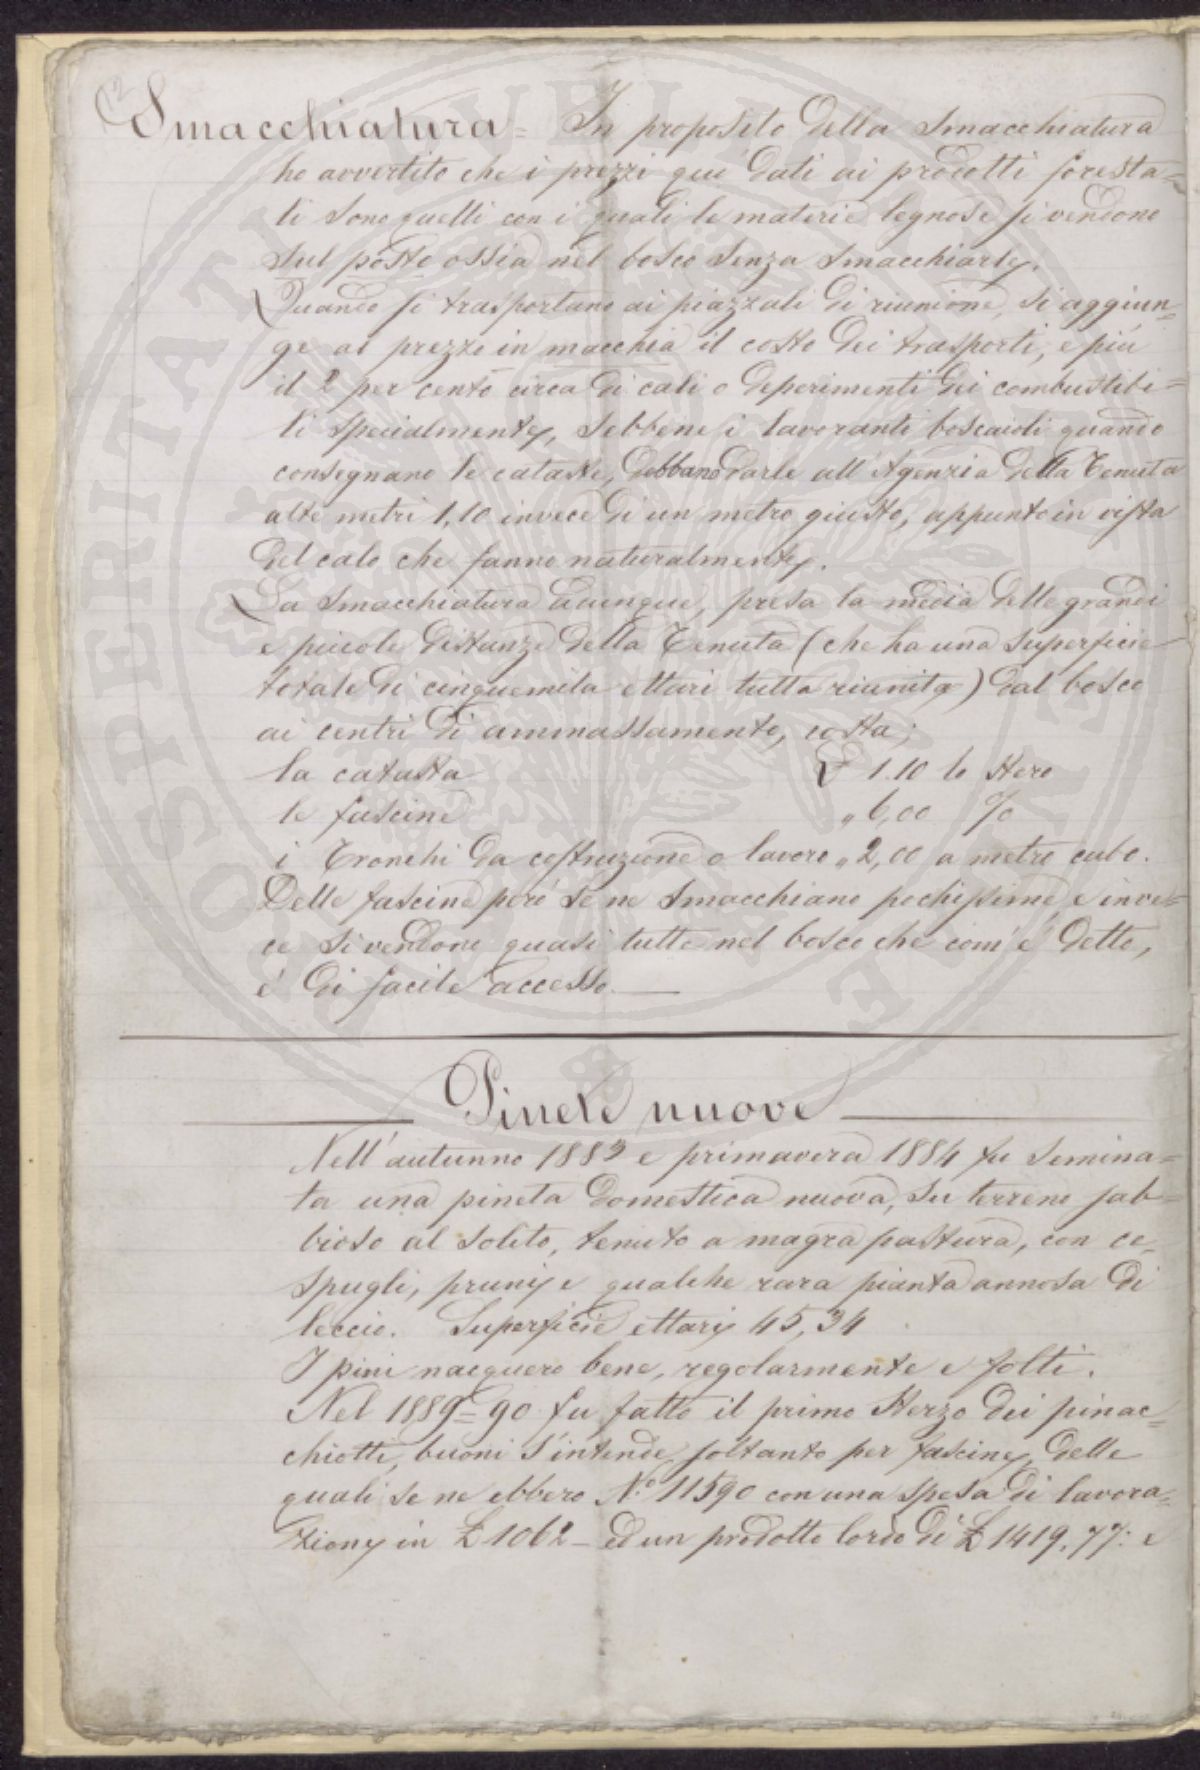 12
Smacchiatura = In proposito della Smacchiatura
ho avvertito che i prezzi qui dati ai prodotti foresta=
li sono quelli con i quali le materie legnose si vendono
sul posto ossia nel bosco senza smacchiarle.
Quando si trasportano ai piazzali di riunione, si aggiun=
ge ai prezzi in macchia il costo dei trasporti, e più
il 2 per cento circa di cali o deperimenti dei combustibi=
li specialmente, sebbene i lavoranti boscaioli quando
consegnano le cataste, debbano darle all'Agenzia della Tenuta
alte metri 1,10 invece di un metro giusto, appunto in vista
del calo che fanno naturalmente.
La Smacchiatura dunque, presa la media delle grandi
e piccole distanze della Tenuta (che ha una superficie
totale di cinquemila ettari tutta riunita) dal bosco
ai centri di ammassamento, costa;
la catasta £ 1.10 lo stero
le fascine „ 6,00 %
i Tronchi da costruzione o lavoro „ 2,00 a metro cubo.
Delle fascine però se ne smacchiano pochissime, e inve=
ce si vendono quasi tutte nel bosco che com'è detto,
è di facile accesso.
Pinete nuove
Nell'autunno 1883 e primavera 1884 fu semina=
ta una pineta domestica nuova, su terreno sab=
bioso al solito, tenuto a magra pastura, con ce=
spugli, pruni e qualche rara pianta annosa di
leccio. Superficie ettari 45,34
I pini nacquero bene, regolarmente e folti.
Nel 1889=90 fu fatto il primo sterzo dei pinac=
chiotti, buoni s'intende soltanto per fascine, delle
quali se ne ebbero N.º 11590 con una spesa di lavora=
zione in £ 1062 – ed un prodotto lordo di £ 1419.77: e